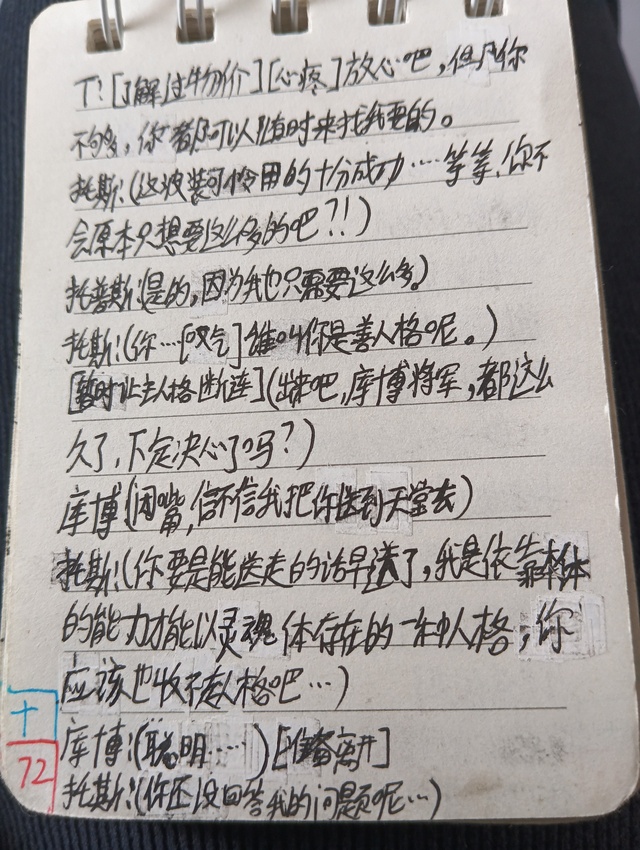 T：[了解过物价][心疼]放心吧，但凡你
不够，你都可以随时来找我要的。
托斯：(这波装可怜用的十分成功……等等，你不
会原本只想要这么多的吧？!！)
托普斯：(是的，因为我也只需要这么多。)
托斯：(你……[叹气]谁叫你是善人格呢。)
[暂时让主人格断连](出来吧，库博将军，都这么
久了，下定决心了吗？)
库博(闭嘴，信不信我把你送到天堂去)
托斯：(你要是能送走的话早送了，我是依靠本体
的能力才能以灵魂体存在的一种人格，你
应该也收不走人格吧…)
库博：(聪明……)[准备离开]
托斯：(你还没回答我的问题呢…)
十
72